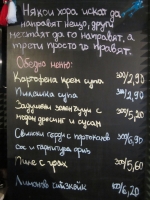 Някои хора искат да
направят нещо, други
мечтаят да го направят, а
трети просто го правят.
Обедно меню:
Картофена крем супа 300/2,90
Пилешка супа 300/2,90
Задушени зеленчуци с
дресинг и сусам 300/5,20
Свински сърца с портокалов
сос и гарнитура ориз 6,90
Пиле с грах 5,60
Лимонов чийзкейк 6,20